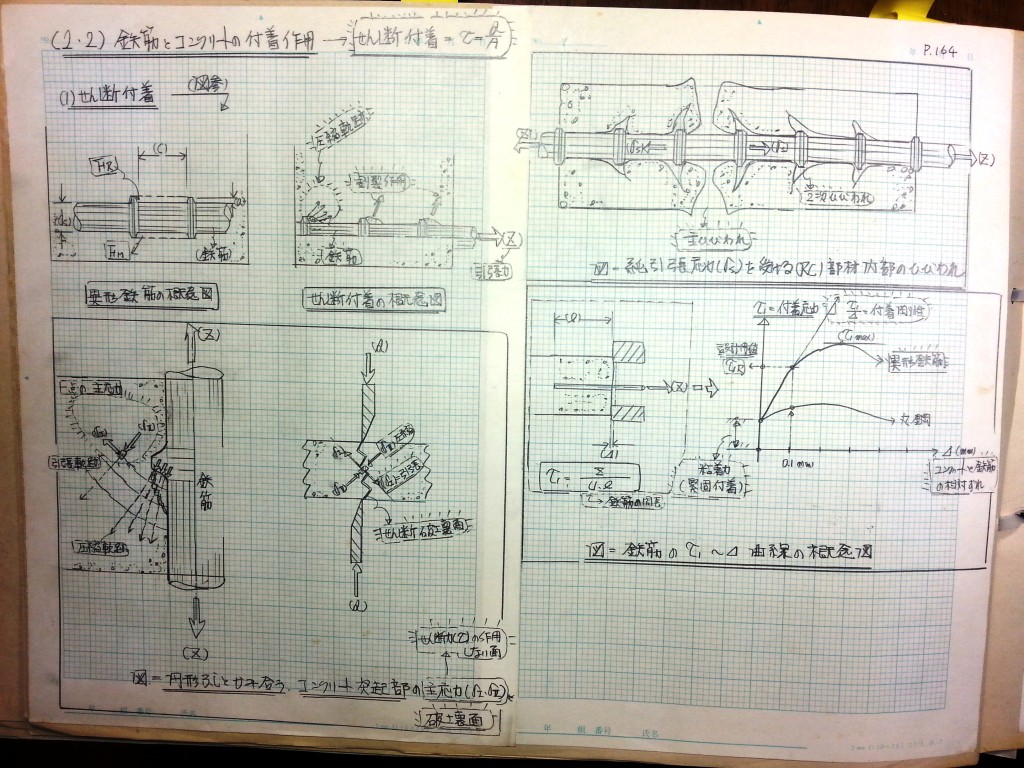 (2.2) 鉄筋とコンクリートの付着作用 → せん断付着 = τ = Q/A
P.164
(1) せん断付着
(図参)
(C)
(鉄筋)
異形鉄筋の概念図
圧縮軌跡
割裂作用
(Z)
引張力
鉄筋
せん断付着の概念図
(Z)
主応力
引張軌跡
圧縮軌跡
鉄筋
(Z)
(Q)
せん断破壊面
(Q)
せん断力(Z)の作用
しない面
図=円形ふしとかみ合う、コンクリート突起部の主応力
破壊面
(Z)
(Z)
2次ひびわれ
主ひびわれ
図=純引張応力を受ける(RC)部材内部のひびわれ
(l)
(Z)
(Δ)
τ₁ = Z / U·l
鉄筋の周長
τ₁=付着応力
τ₁/Δ=付着剛性
(τ₁max)
異形鉄筋
丸鋼
0.1mm
Δ(mm)
コンクリートと鉄筋
の相対ずれ
粘着力
(緊固付着)
図=鉄筋のτ₁~Δ曲線の概念図
年 組 番号 氏名